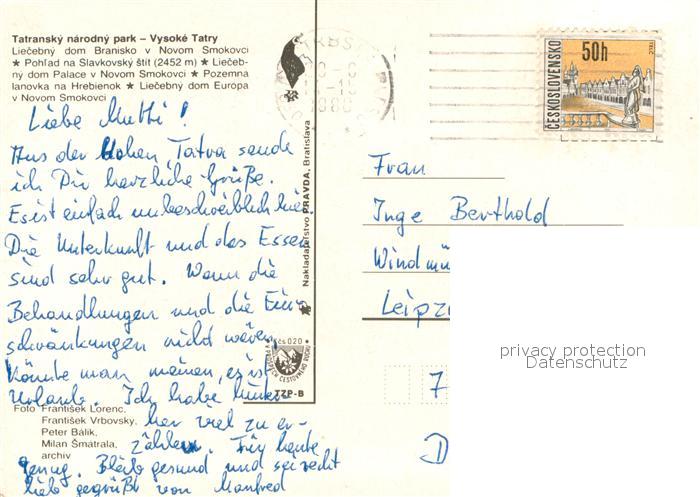 Tatranský národný park – Vysoké Tatry
Liečebný dom Branisko v Novom Smokovci
★ Pohľad na Slavkovský štít (2452 m) ★ Liečeb-
ný dom Palace v Novom Smokovci ★ Pozemna
lanovka na Hrebienok ★ Liečebný dom Európa
v Novom Smokovci
Liebe Mutti!
Aus der Hohen Tatra sende
ich Dir herzliche Grüße.
Es ist einfach unbeschreiblich hier.
Die Unterkunft und das Essen
sind sehr gut. Wenn die
Behandlungen und die Ein-
schränkungen nicht wären,
könnte man meinen, es ist
Urlaub. Ich habe hinter-
her viel zu er-
zählen. Für heute
genug. Bleib gesund und sei recht
lieb gegrüßt von Manfred
Foto František Lorenc,
František Vrbovsky,
Peter Bálik,
Milan Šmátrala,
archív
Nakladateľstvo PRAVDA, Bratislava
Kčs 020
TZP-B
ČESKOSLOVENSKO
50h
TELČ
Frau
Inge Berthold
Windmü
Leipz
7
D
privacy protection
Datenschutz